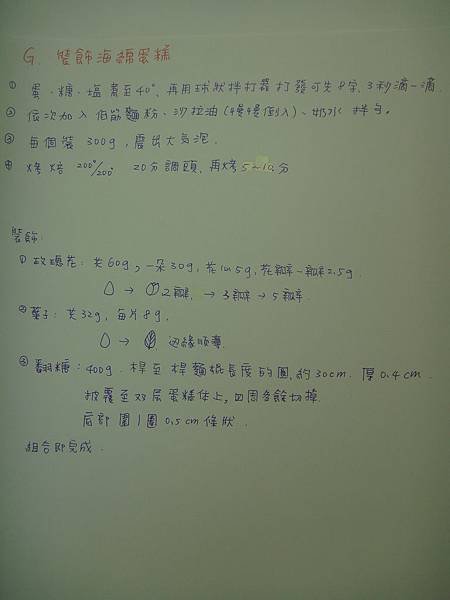 G. 裝飾海綿蛋糕
① 蛋、糖、塩煮至40°, 再用球狀拌打器打發可先8字, 3秒滴一滴
② 依次加入低筋麵粉、沙拉油(慢慢倒入)、奶水 拌勻。
③ 每個裝 300g, 震出大氣泡.
④ 烤焙 200°/200° 20分調頭, 再烤5~10分
裝飾:
① 玫瑰花: 共60g, 一朵30g, 花心5g, 花瓣一瓣2.5g.
→ 2瓣, → 3瓣 → 5瓣.
② 葉子: 共32g, 每片8g.
→ 边緣順薄.
③ 翻糖: 400g. 桿至桿麵棍長度的圓, 約30cm. 厚0.4cm.
披覆至双层蛋糕体上, 四周多餘切掉.
底部圍1圈0.5cm條狀.
組合即完成.